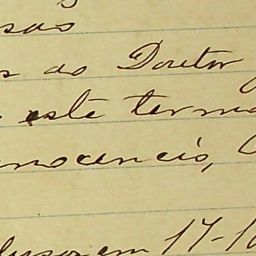 sas
s ao Doutor
este termo
nnocencio,
em 17-1